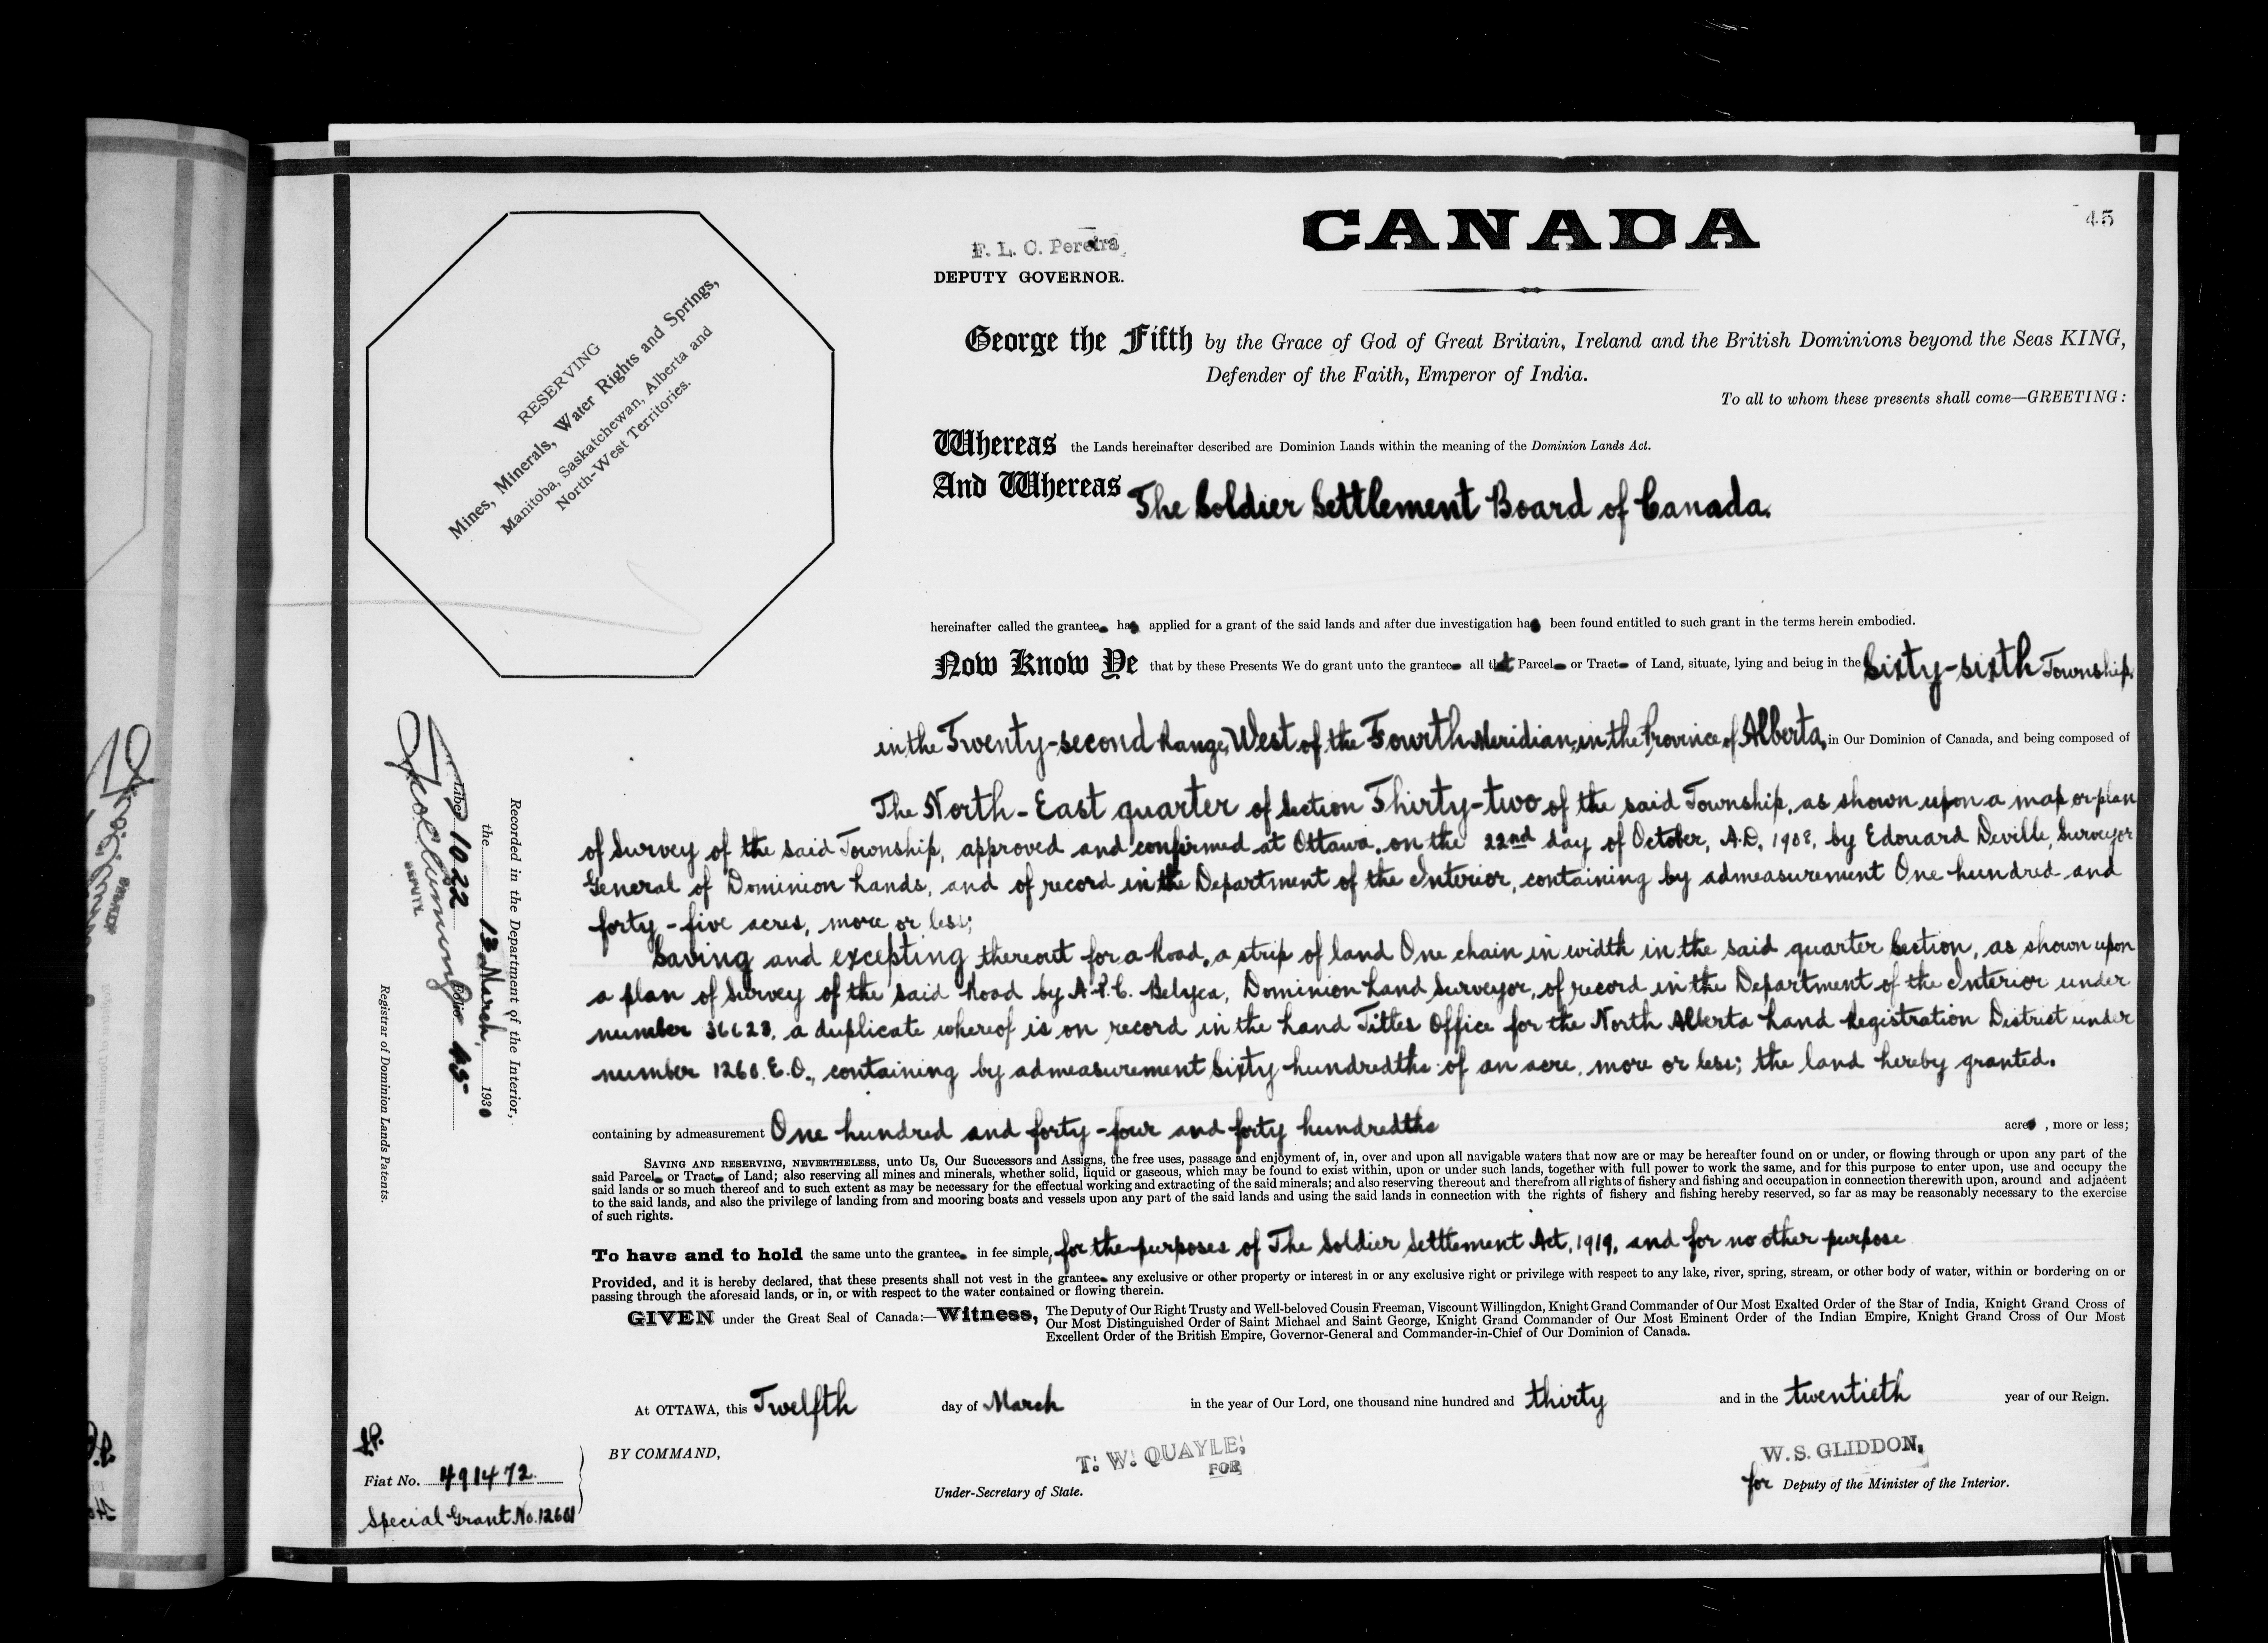 45
CANADA
F. L. C. Pereira,
DEPUTY GOVERNOR.
RESERVING
Mines, Minerals, Water Rights and Springs,
Manitoba, Saskatchewan, Alberta and
North-West Territories.
George the Fifth by the Grace of God of Great Britain, Ireland and the British Dominions beyond the Seas KING,
Defender of the Faith, Emperor of India.
To all to whom these presents shall come—GREETING:
Whereas the Lands hereinafter described are Dominion Lands within the meaning of the Dominion Lands Act.
And Whereas The Soldier Settlement Board of Canada.
hereinafter called the grantee ha applied for a grant of the said lands and after due investigation ha been found entitled to such grant in the terms herein embodied.
Now Know Ye that by these Presents We do grant unto the grantee all that Parcel or Tract of Land, situate, lying and being in the Sixty-sixth Township,
in the Twenty-second Range, West of the Fourth Meridian, in the Province of Alberta, in Our Dominion of Canada, and being composed of
The North-East quarter of Section Thirty-two of the said Township, as shown upon a map or plan
of Survey of the said Township, approved and confirmed at Ottawa, on the 22nd day of October, A.D. 1908, by Edouard Deville, Surveyor
General of Dominion Lands, and of record in the Department of the Interior, containing by admeasurement One hundred and
forty-five acres, more or less;
Saving and excepting thereout for a Road, a strip of land One chain in width in the said quarter Section, as shown upon
a plan of Survey of the said Road by A.P.C. Belyea, Dominion Land Surveyor, of record in the Department of the Interior under
number 36623, a duplicate whereof is on record in the Land Titles Office for the North Alberta Land Registration District under
number 1260. E.O., containing by admeasurement Sixty hundredths of an acre, more or less; the land hereby granted.
containing by admeasurement One hundred and forty-four and forty hundredths acres, more or less;
SAVING AND RESERVING, NEVERTHELESS, unto Us, Our Successors and Assigns, the free uses, passage and enjoyment of, in, over and upon all navigable waters that now are or may be hereafter found on or under, or flowing through or upon any part of the
said Parcel or Tract of Land; also reserving all mines and minerals, whether solid, liquid or gaseous, which may be found to exist within, upon or under such lands, together with full power to work the same, and for this purpose to enter upon, use and occupy the
said lands or so much thereof and to such extent as may be necessary for the effectual working and extracting of the said minerals; and also reserving thereout and therefrom all rights of fishery and fishing and occupation in connection therewith upon, around and adjacent
to the said lands, and also the privilege of landing from and mooring boats and vessels upon any part of the said lands and using the said lands in connection with the rights of fishery and fishing hereby reserved, so far as may be reasonably necessary to the exercise
of such rights.
To have and to hold the same unto the grantee in fee simple, for the purposes of The Soldier Settlement Act, 1919, and for no other purpose
Provided, and it is hereby declared, that these presents shall not vest in the grantee any exclusive or other property or interest in or any exclusive right or privilege with respect to any lake, river, spring, stream, or other body of water, within or bordering on or
passing through the aforesaid lands, or in, or with respect to the water contained or flowing therein.
GIVEN under the Great Seal of Canada:—Witness, The Deputy of Our Right Trusty and Well-beloved Cousin Freeman, Viscount Willingdon, Knight Grand Commander of Our Most Exalted Order of the Star of India, Knight Grand Cross of
Our Most Distinguished Order of Saint Michael and Saint George, Knight Grand Commander of Our Most Eminent Order of the Indian Empire, Knight Grand Cross of Our Most
Excellent Order of the British Empire, Governor-General and Commander-in-Chief of Our Dominion of Canada.
At OTTAWA, this Twelfth day of March in the year of Our Lord, one thousand nine hundred and thirty and in the twentieth year of our Reign.
BY COMMAND,
T. W. QUAYLE,
FOR
Under-Secretary of State.
W. S. GLIDDON,
for Deputy of the Minister of the Interior.
Recorded in the Department of the Interior,
the 13 March, 1930
Liber 1022 Folio 45
DEPUTY
Registrar of Dominion Lands Patents.
Fiat No. 491472
Special Grant No. 12601